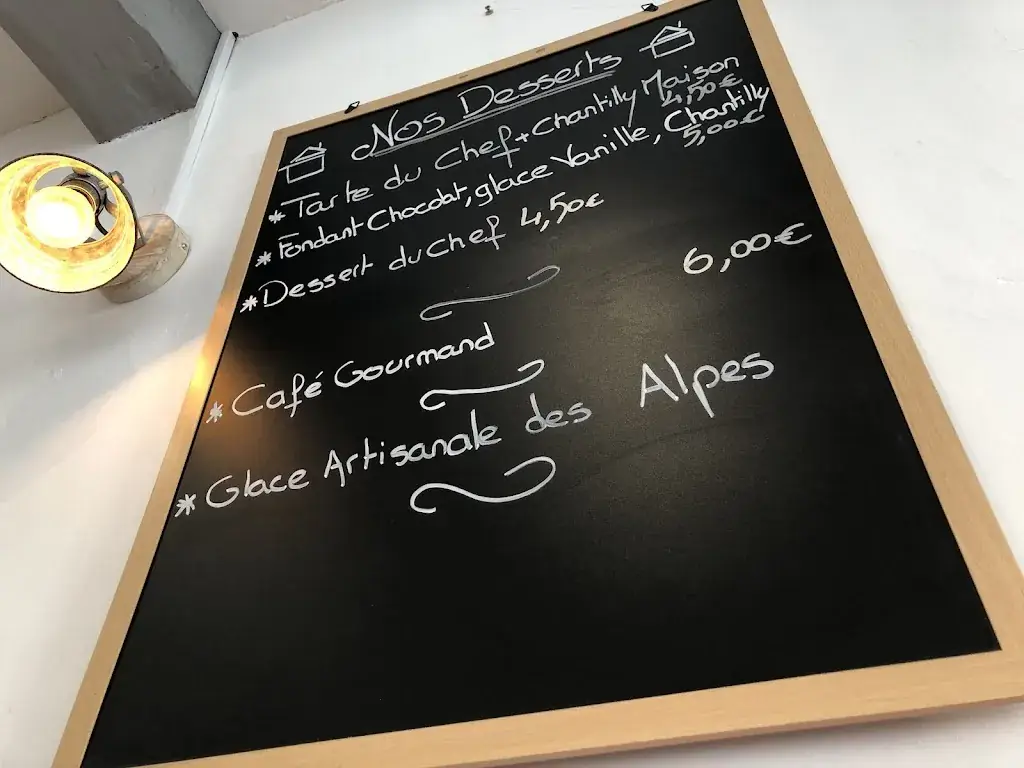 Nos Desserts
* Tarte du Chef + Chantilly Maison
4,50€
* Fondant Chocolat, glace Vanille, Chantilly
5,00€
* Dessert du chef 4,50€
* Café Gourmand 6,00€
* Glace Artisanale des Alpes